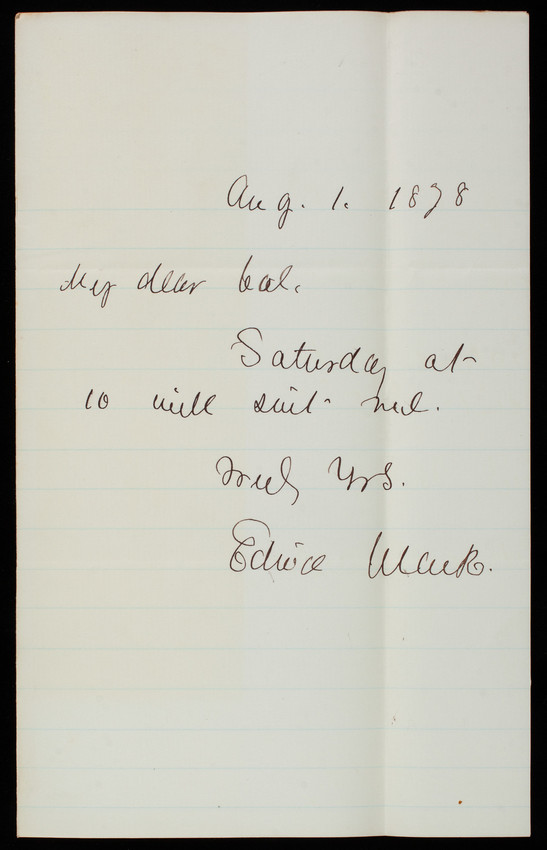 Aug. 1. 1878
My dear Col.
Saturday at
10 will suit me.
Truly Yrs.